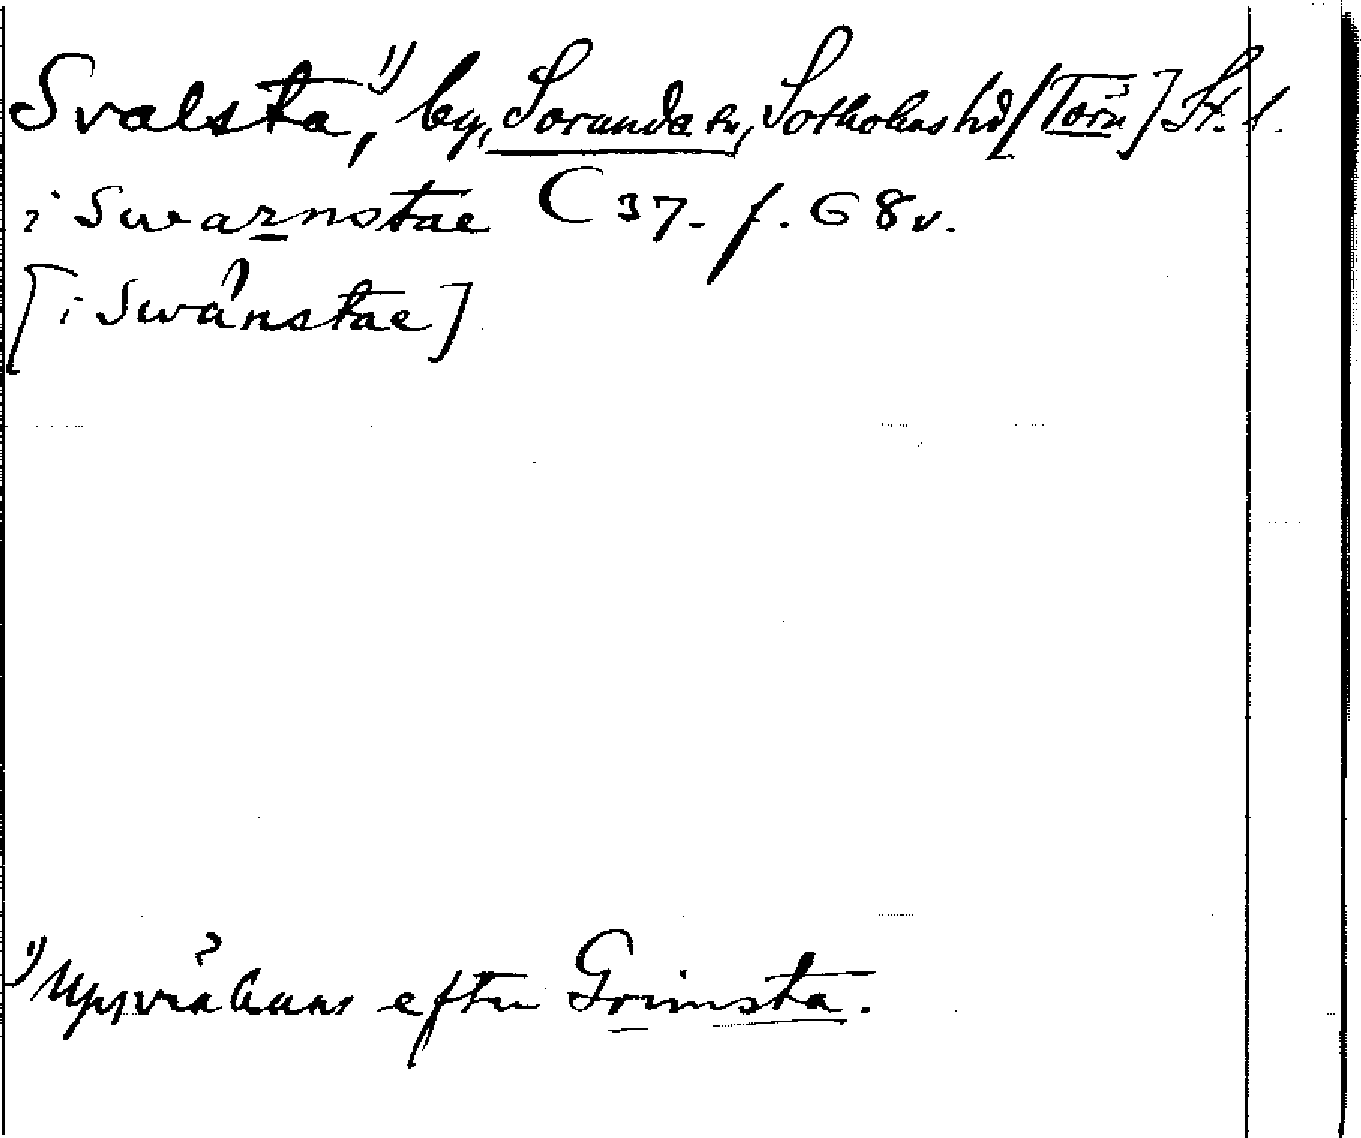 Svalsta,¹⁾ by, Sorunda sn, Sotholms hd [Torn] St. l.
i Swarnstae C 37. f. G 8v.
[i Swanstae]
¹⁾ efter Grimsta.